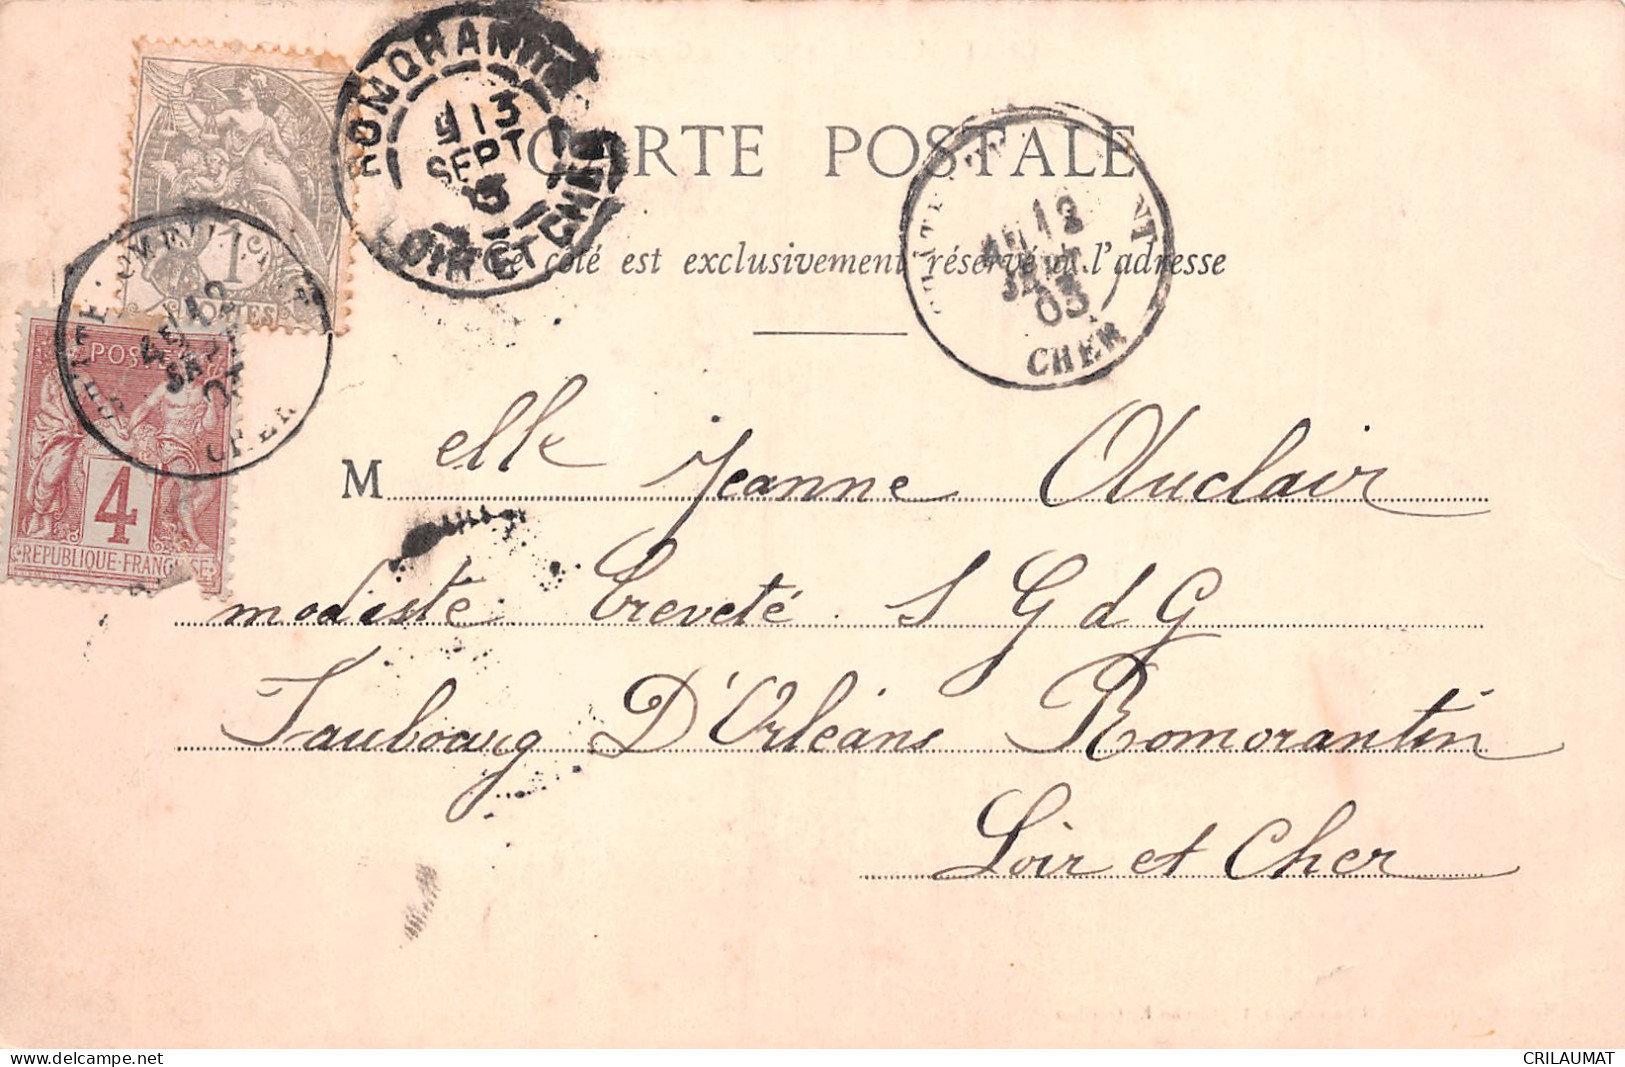 CARTE POSTALE
Ce côté est exclusivement réservé à l'adresse
1c
POSTES
ROMORANTIN
13
SEPT
LOIR ET CHER
12
03
CHER
POSTES
4
REPUBLIQUE FRANÇAISE
Melle Jeanne Auclair
modiste breveté S G d G
Faubourg D'Orléans Romorantin
Loir et Cher
CRILAUMAT